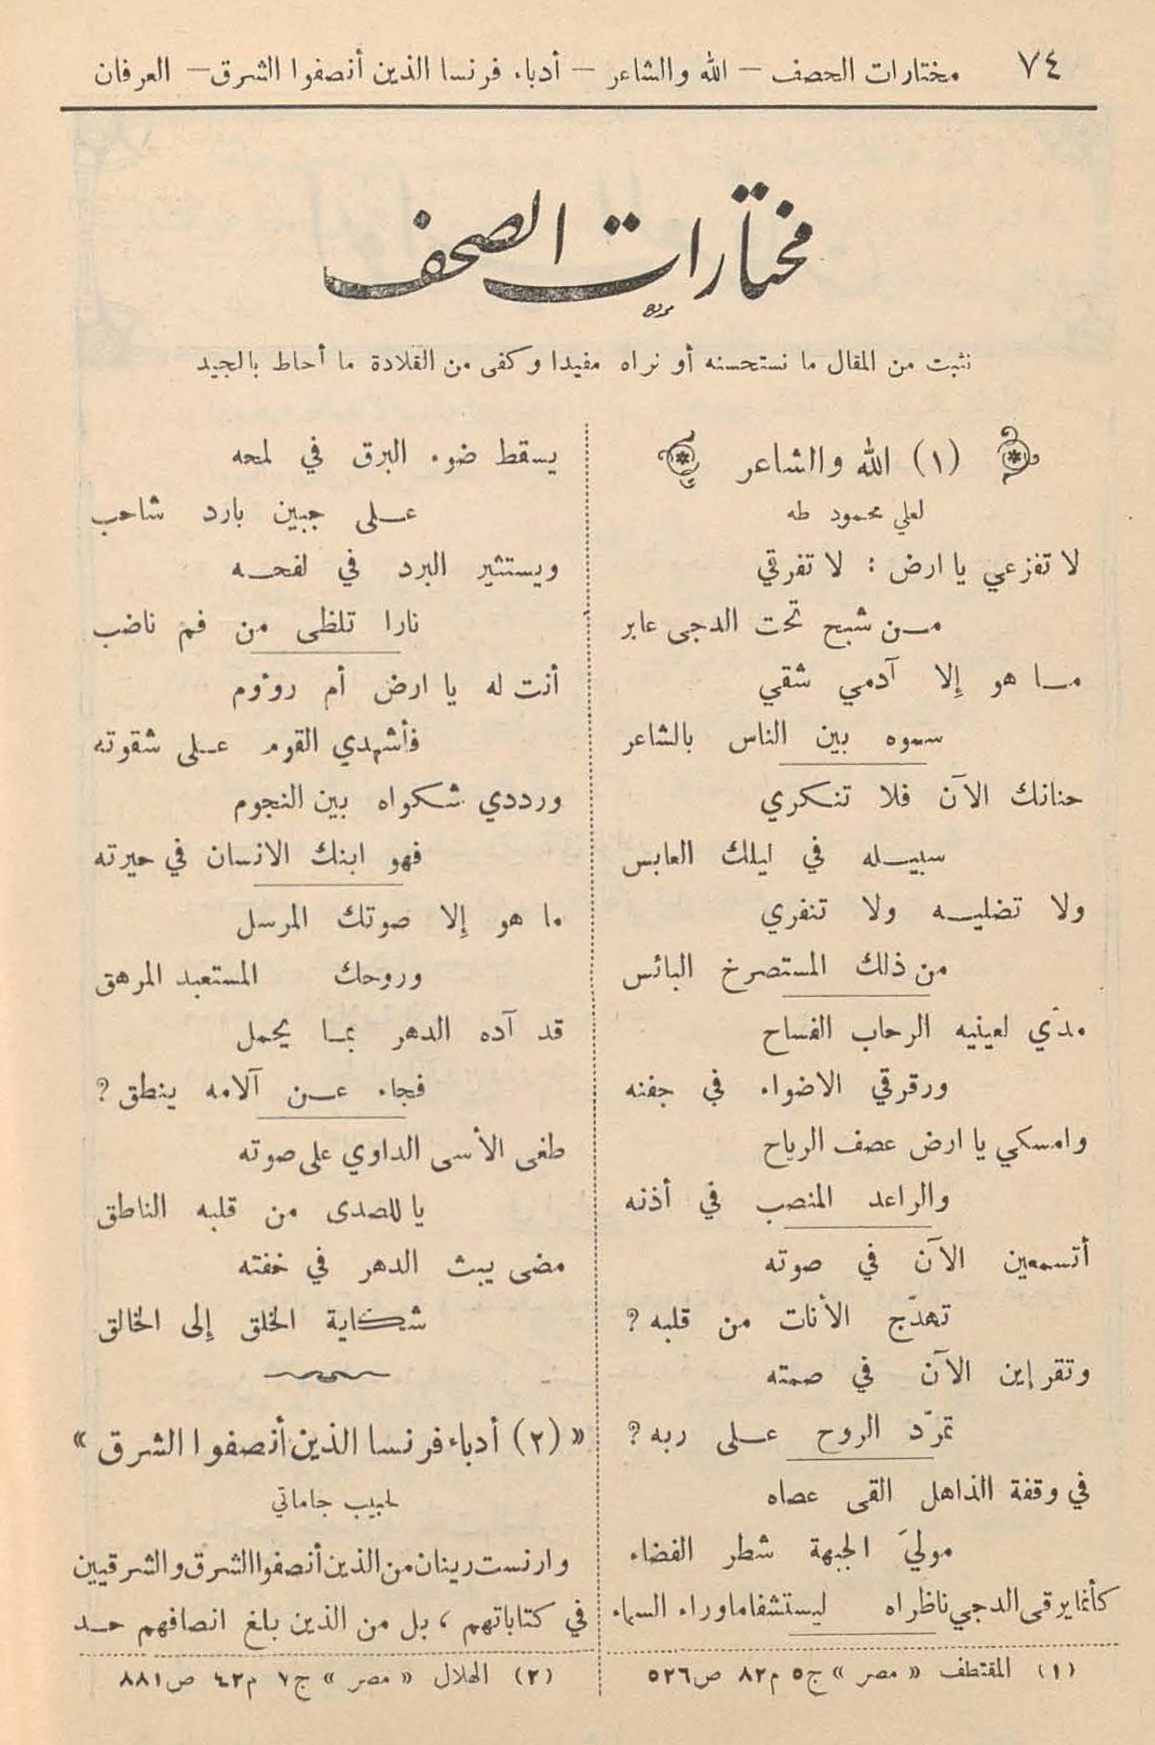 ٧٤ مختارات الحصف — الله والشاعر — أدباء فرنسا الذين أنصفوا الشرق — العرفان
مختارات الصحف
نثبت من المقال ما نستحسنه أو نراه مفيدا وكفى من القلادة ما أحاط بالجيد
(١) الله والشاعر
لعلي محمود طه
لا تفزعي يا ارض : لا تفرقي
مــن شبح تحت الدجى عابر
مــا هو إلا آدمي شقي
سموه بين الناس بالشاعر
حنانك الآن فلا تنكري
سبيــله في ليلك العابس
ولا تضليــه ولا تنفري
من ذلك المستصرخ البائس
مدّي لعينيه الرحاب الفساح
ورقرقي الاضواء في جفنه
وامسكي يا ارض عصف الرياح
والراعد المنصب في أذنه
أتسمعين الآن في صوته
تهدّج الأنات من قلبه ?
وتقرإين الآن في صمته
تمرّد الروح عــلى ربه ?
في وقفة الذاهل القى عصاه
موليَ الجبهة شطر الفضاء
كأنما يرقى الدجي ناظراه ليستشفا ماوراء السماء
(١) المقتطف « مصر » ج٥ م٨٢ ص٥٢٦
يسقط ضوء البرق في لمحه
عــلى جبين بارد شاحب
ويستثير البرد في لفحــه
نارا تلظى من فم ناضب
أنت له يا ارض أم رؤوم
فأشهدي القوم عــلى شقوته
ورددي شكواه بين النجوم
فهو ابنك الانسان في حيرته
ما هو إلا صوتك المرسل
وروحك المستعبد المرهق
قد آده الدهر بمــا يحمل
فجاء عــن آلامه ينطق ?
طغى الأسى الداوي على صوته
يا للصدى من قلبه الناطق
مضى يبث الدهر في خفته
شكاية الخلق إلى الخالق
« (٢) أدباء فرنسا الذين أنصفوا الشرق »
لحبيب جاماتي
وارنست رينان من الذين أنصفوا الشرق والشرقيين
في كتاباتهم ، بل من الذين بلغ انصافهم حــد
(٢) الهلال « مصر » ج٧ م٤٢ ص٨٨١